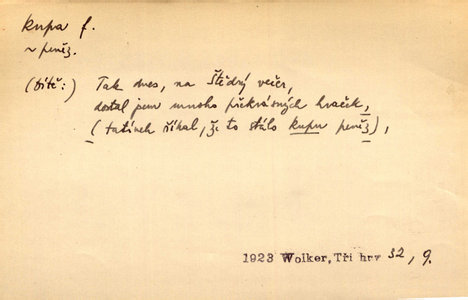 kupa f.
~ peněz.
(dítě:) Tak dnes, na Štědrý večer,
dostal jsem mnoho překrásných hraček,
(tatínek říkal, že to stálo kupu peněz),
1923 Wolker, Tři hry 32, 9.